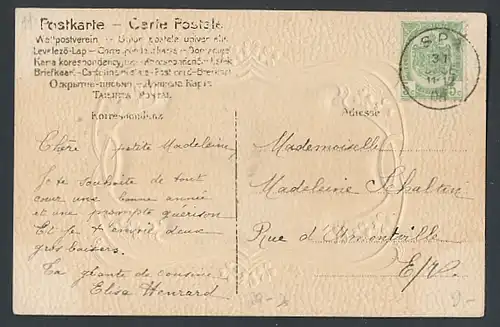 Postkarte – Carte Postale
Weltpostverein – Union postale universelle
Levelező-Lap – Correspondenzkarte – Dopisnice
Karta korespondencyjna – Korespondenční lístek
Briefkaart – Cartolina postale – Post card – Brevkort
Открытое письмо – Дописна Карта
Tarjeta Postal
Korrespondenz
Adresse
SPA
31
11-
08
Chère petite Madeleine,
Je te souhaite de tout
cœur une bonne année
et une prompte guérison
Et je t'envoie deux
gros baisers.
Ta géante de cousine.
Elisa Henrard
Mademoiselle
Madeleine Schalten
Rue d'
E/V.